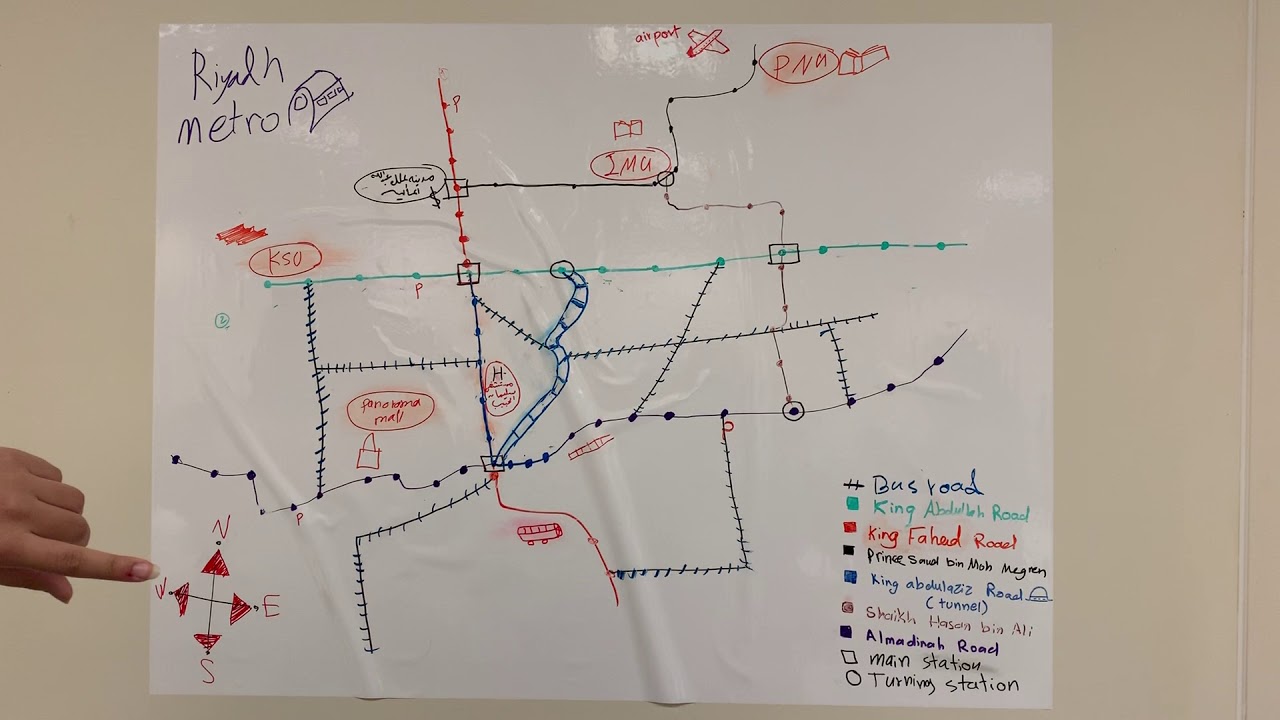 Riyadh
metro
airport
PNU
IMU
P
مدينة الملك عبدالله
KSU
P
2
H.
مستشفى
سليمان
الحبيب
Panorama
mall
P
N
W
E
S
Bus road
King Abdullah Road
King Fahed Road
Prince Saud bin Moh Megren
King abdulaziz Road
(tunnel)
Shaikh Hasan bin Ali
Almadinah Road
main station
Turning station